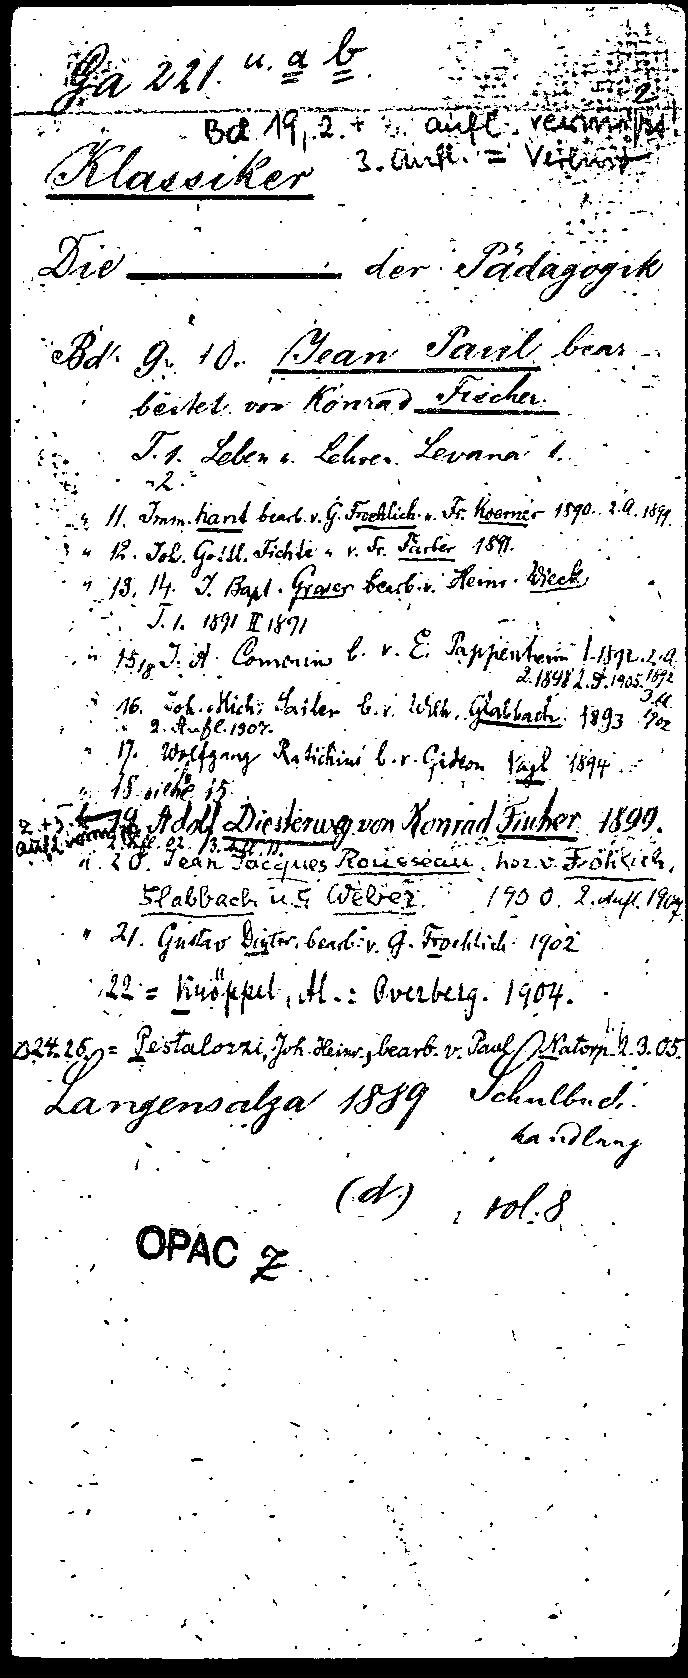 Ga 221. u. a b
2
Bd 19, 2. + 3. Aufl. vermißt
3. Aufl. = Verlust
Klassiker
Die ———— der Pädagogik
Bd. 9. 10. Jean Paul bear-
beitet von Konrad Fischer.
T. 1. Leben u. Lehre. Levana 1.
" 2. "
" 11. Imm. Kant bearb. v. G. Froehlich u. Fr. Koerner 1890. 2. A. 1899
" 12. Joh. Gottl. Fichte " v. Fr. Färber 1891.
" 13. 14. J. Bapt. Graser bearb. v. Heinr. Wieck
T. 1. 1891 II 1891
" 15, 18 J. A. Comenius b. v. E. Pappenheim 1. 1892. 2. A. 1892
2. 1898 2. A. 1905. 3. A. 1902
" 16. Joh. Mich. Sailer b. v. Wilh. Glabbach 1893
2. Aufl. 1907.
" 17. Wolfgang Ratichius b. v. Gideon Vogt 1894
" 18 siehe 15
" 19. Adolf Diesterweg von Konrad Fischer 1899.
2. + 3. Aufl. vermißt
2. Aufl. 02. 3. Aufl. 11.
" 20. Jean Jacques Rousseau. v. Fröhlich,
Glabbach u. Weber. 1900. 2. Aufl. 1907
" 21. Gustav Dinter. bearb. v. G. Froehlich 1902
22 = Knöppel, Al.: Overberg. 1904.
24. 25. = Pestalozzi, Joh. Heinr., bearb. v. Paul Natorp. 1. 2. 3. 05.
Langensalza 1889 Schulbuch-
handlung
(d.) , vol. 8
OPAC Z